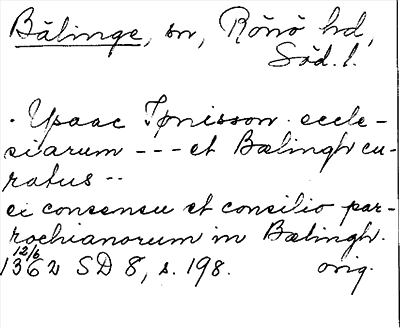 Bälinge, sn, Rönö hd,
Söd. l.
. Ysaac Tønisson eccle-
siarum --- et Bælingh cu-
ratus --
ei consensu et consilio par-
rochianorum in Bælingh.
12/6
1362 SD 8, s. 198. orig.